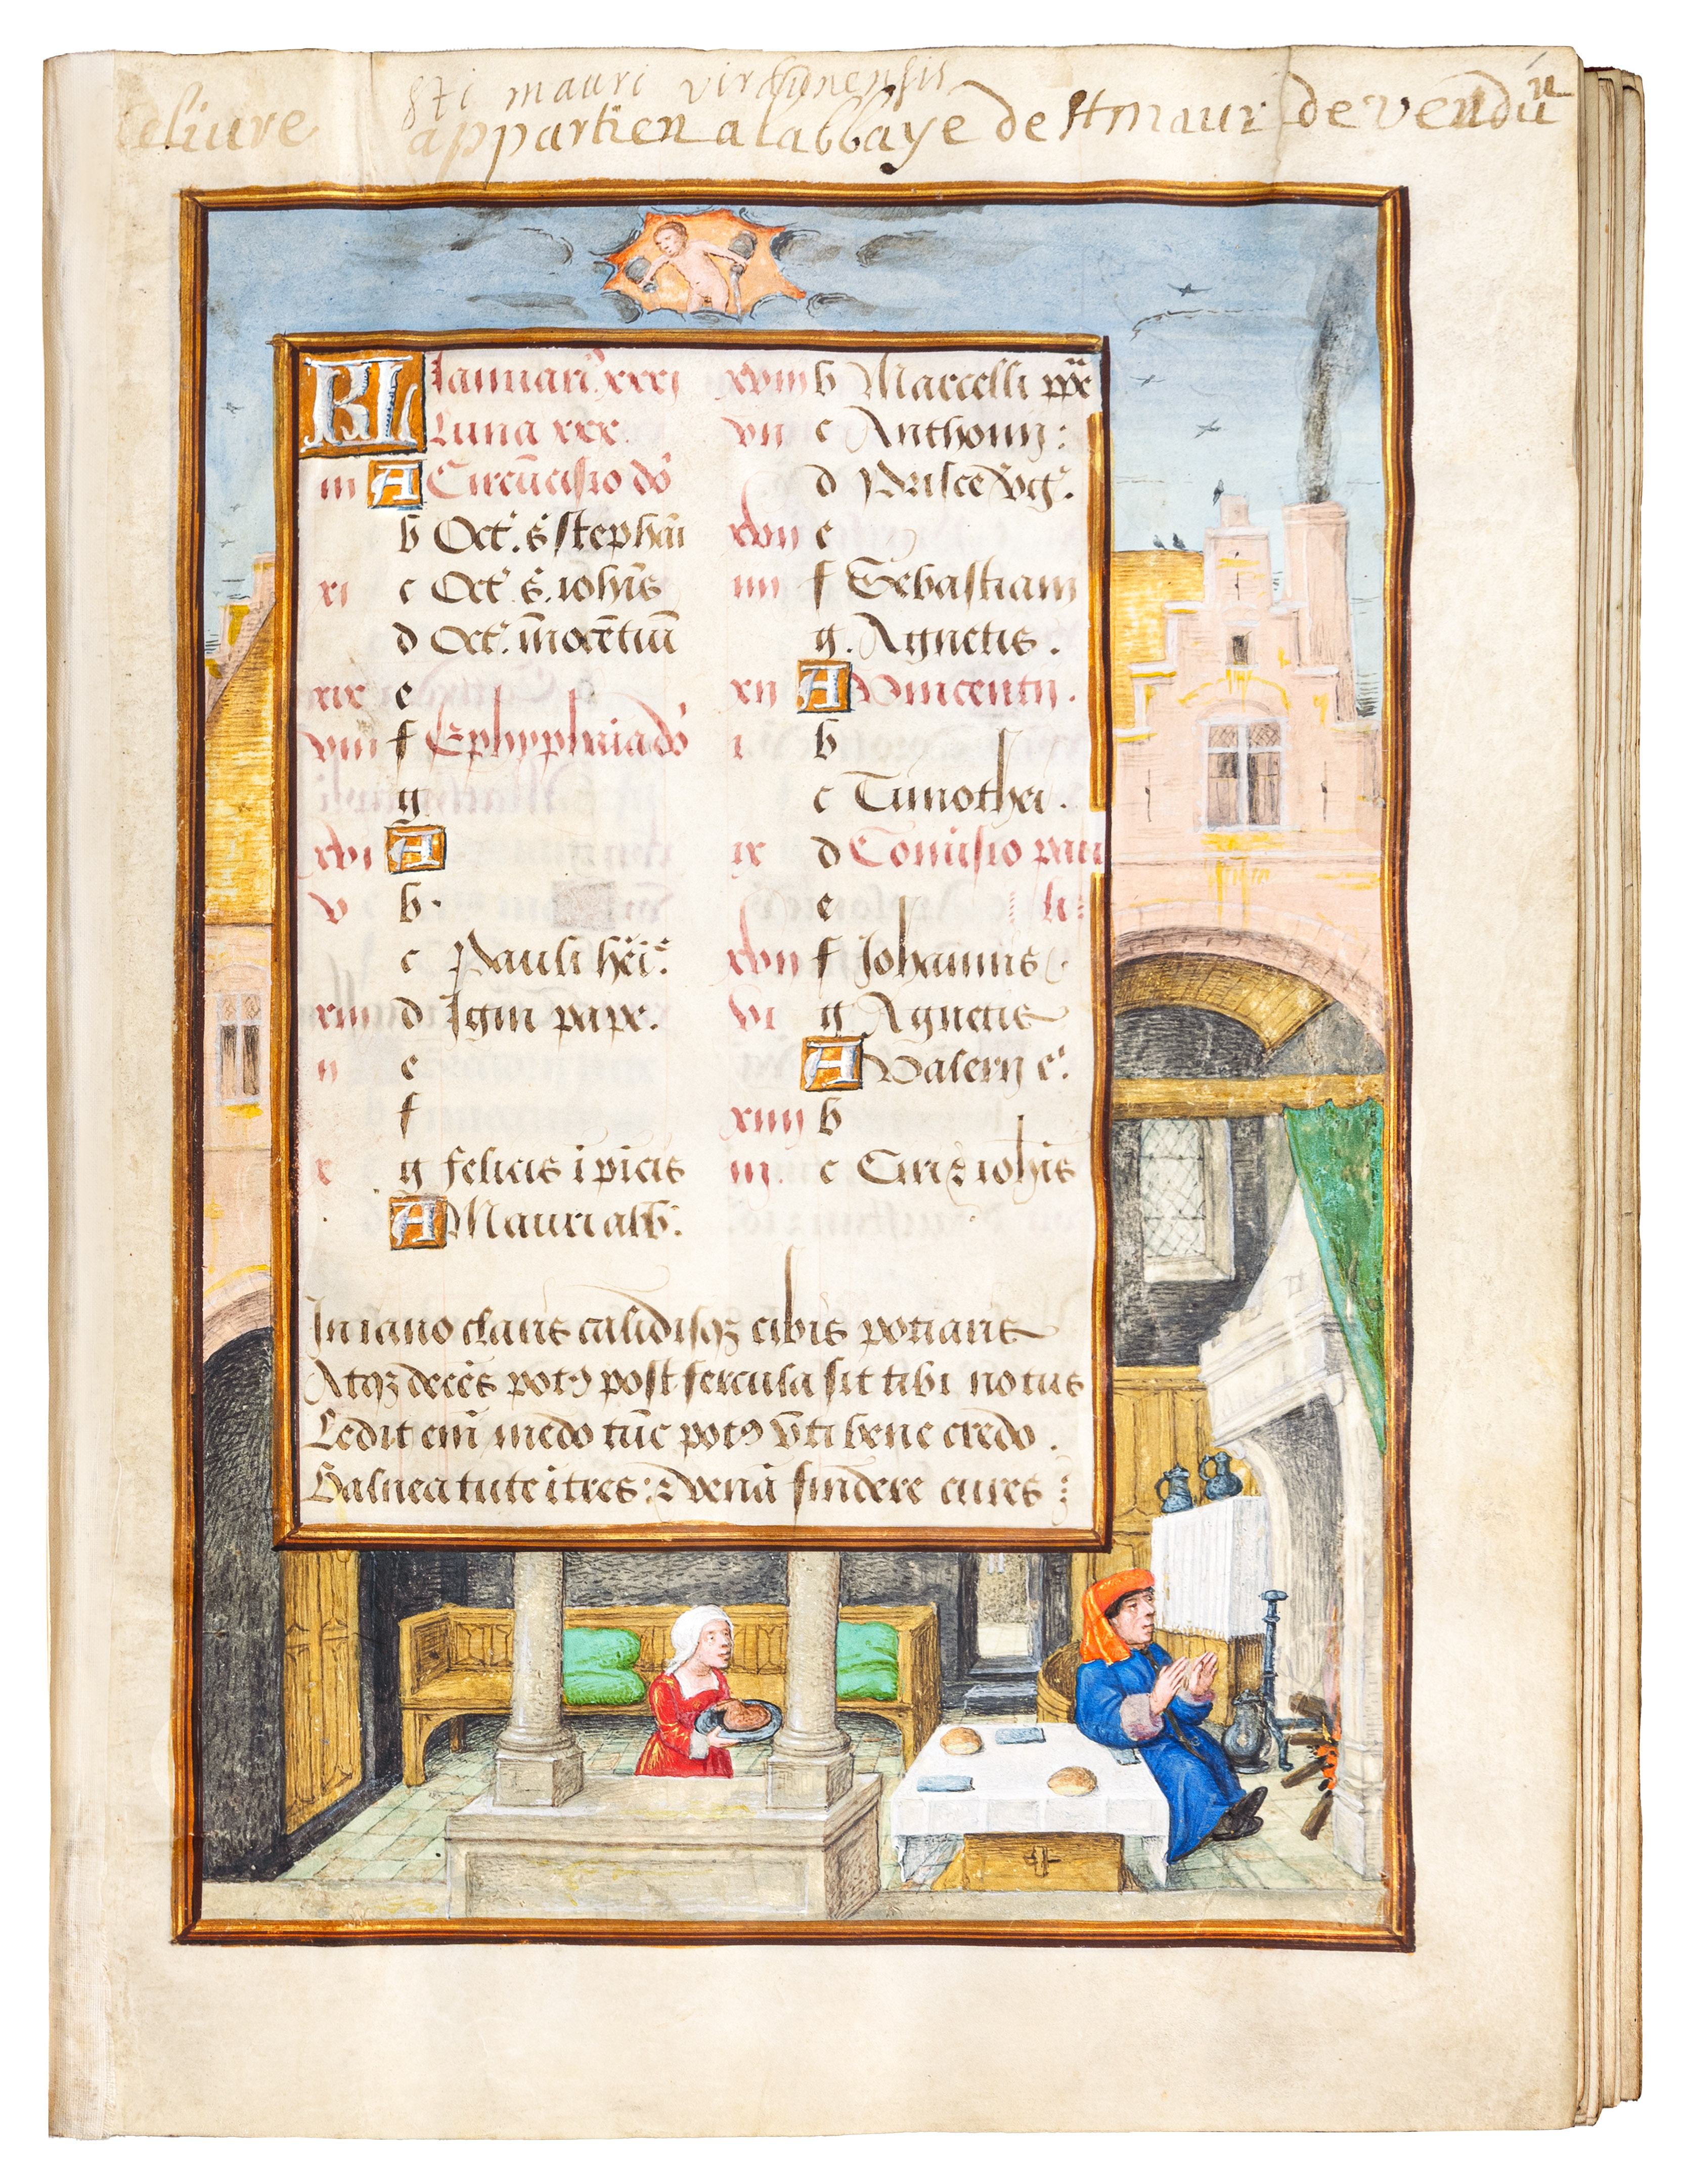 Sti mauri virdunensis
ce liure appartien a labbaye de st maur de verdun
KL Januari' xxxi
Luna xxx.
iii A Circūcisio dō
b Oct'. s' stephāi
xi c Oct' s'. iohīs
d Oct'. īnocētiū
xix e
viii f Ephyphnia dō
g
xvi A
v b.
c Pauli h'ei'.
xiii d Igini pape.
ii e
f
x g felicis i picis
A Mauri abb'.
xviii b Marcelli ppe
vii c Anthonij:
d Prisce v'g'.
xvii e
iiii f Sebastiani
g. Agnetis.
xii A Vincentij.
i b
c Timothei.
ix d Conuisio pau
e li
xvii f Johannis
vi g Agnetis
A Valerij e'.
xiiii b
iij c Ciri ⁊ iohīs
In iano claris calidisqꝫ cibis potiaris
Atqꝫ decēs potꝰ post fercula sit tibi notus
Ledit em̄ medo tūc potꝰ vt̄i bene credo.
Balnea tute ītres: ⁊ venā findere cures